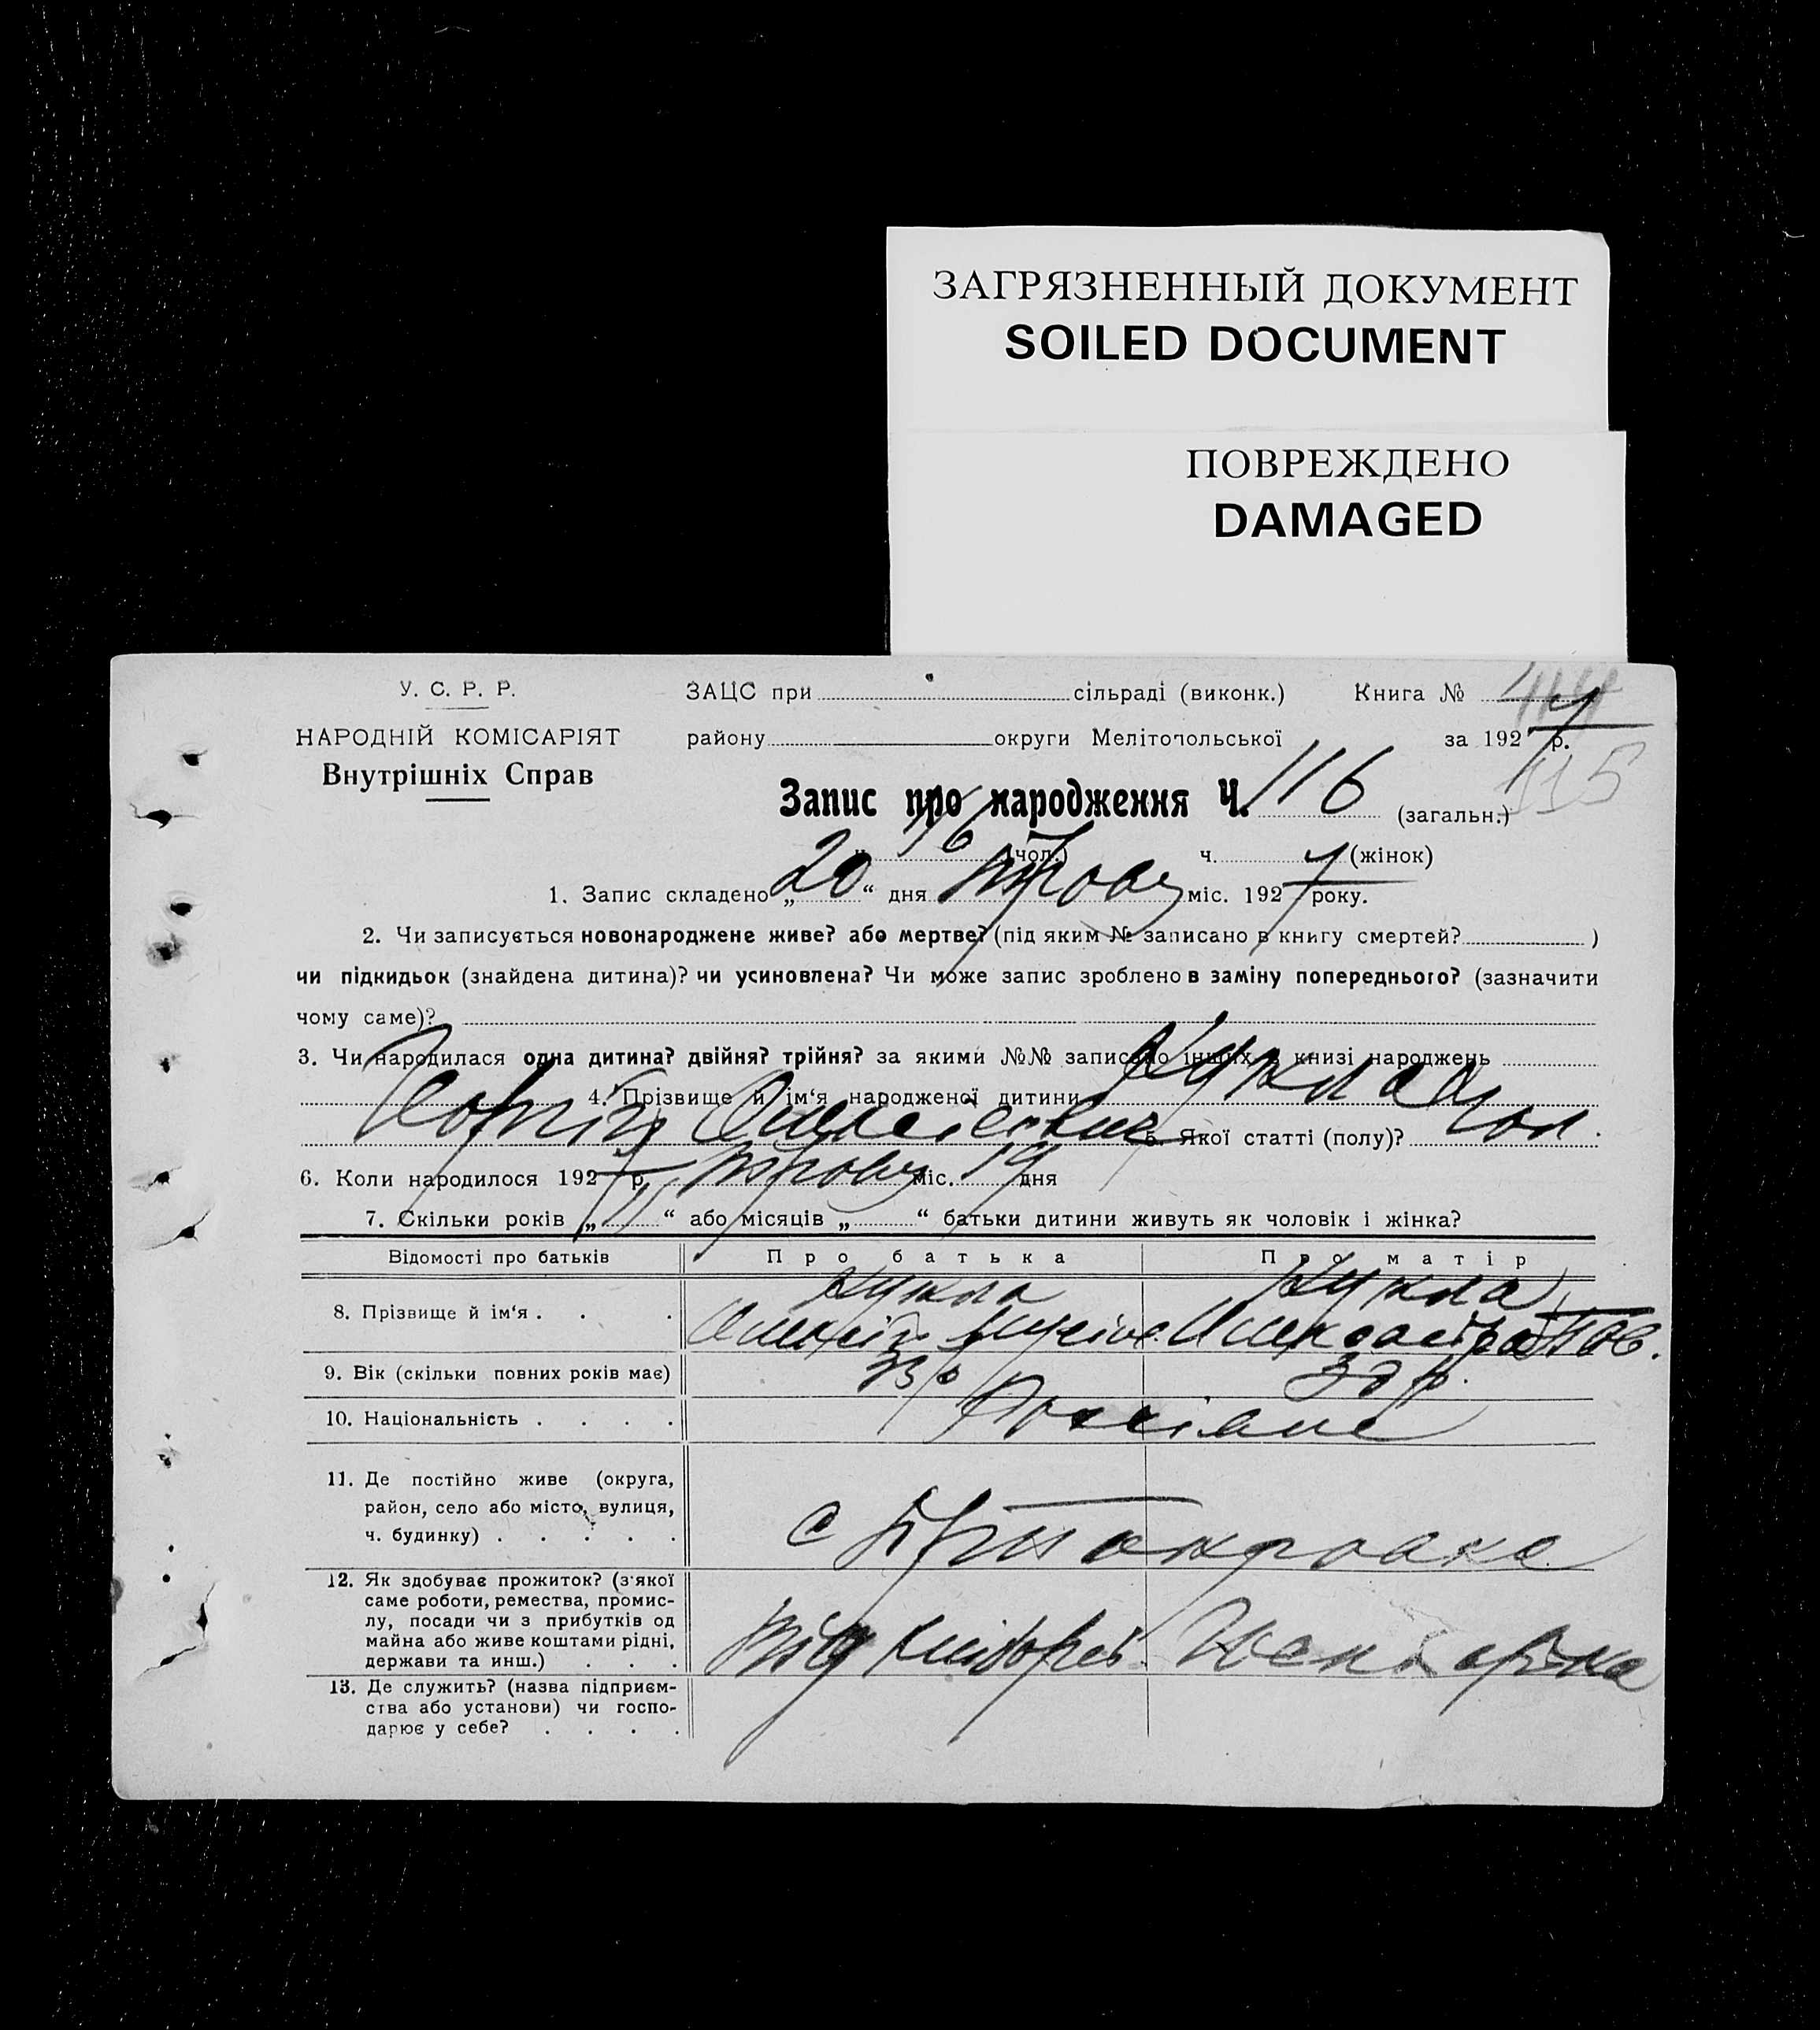 ЗАГРЯЗНЕННЫЙ ДОКУМЕНТ
SOILED DOCUMENT
ПОВРЕЖДЕНО
DAMAGED
У. С. Р. Р.
НАРОДНІЙ КОМІСАРІЯТ
Внутрішніх Справ
ЗАЦС при сільраді (виконк.) Книга №
району округи Мелітопольської за 1927 р.
115
Запис про народження Ч. 116 (загальн.)
ч. 76 (чол.) ч. (жінок)
1. Запис складено „20“ дня міс. 1927 року.
2. Чи записується новонароджене живе? або мертве? (під яким № записано в книгу смертей? )
чи підкидьок (знайдена дитина)? чи усиновлена? Чи може запис зроблено в заміну попереднього? (зазначити
чому саме)?
3. Чи народилася одна дитина? двійня? трійня? за якими №№ записано інших в книзі народжень
4. Прізвище й ім‘я народженої дитини Кукла
5. Якої статті (полу)? чол.
6. Коли народилося 1927 р. міс. 19 дня
7. Скільки років „11“ або місяців „ “ батьки дитини живуть як чоловік і жінка?
Відомості про батьків Про батька Про матір
8. Прізвище й ім‘я . . . Кукла Кукла
Олексій
9. Вік (скільки повних років має) 33 р 30 р.
10. Національність . . . . Росіяне
11. Де постійно живе (округа,
район, село або місто, вулиця,
ч. будинку) . . . . . с
12. Як здобуває прожиток? (з‘якої
саме роботи, ремества, промис-
лу, посади чи з прибутків од
майна або живе коштами рідні,
держави та инш.) . . .
13. Де служить? (назва підприєм-
ства або установи) чи госпо-
дарює у себе? . . . .